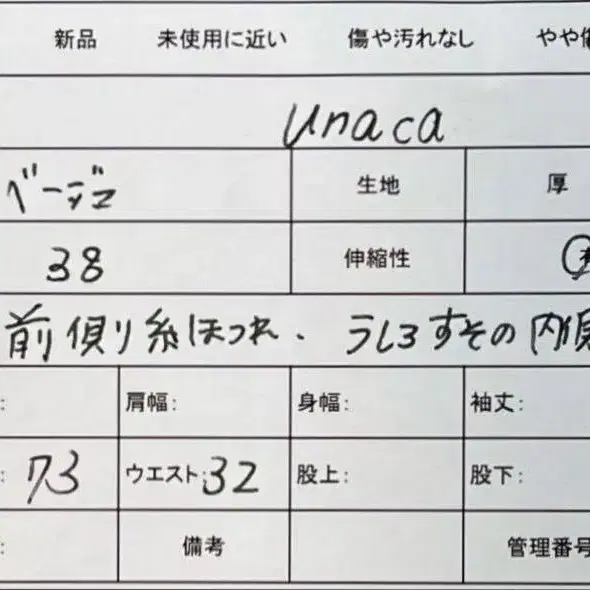 新品 未使用に近い 傷や汚れなし やや傷
unaca
ベージュ 生地 厚
38 伸縮性
前側り糸ほつれ、うしろすその内側
: 肩幅: 身幅: 袖丈:
: 73 ウエスト:32 股上: 股下:
: 備考 管理番号